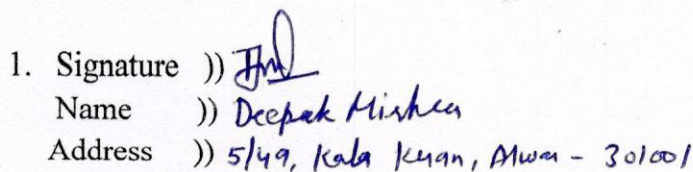 1. Signature ))
Name )) Deepak Mishra
Address )) 5/49, Kala Kuan, Alwar - 301001